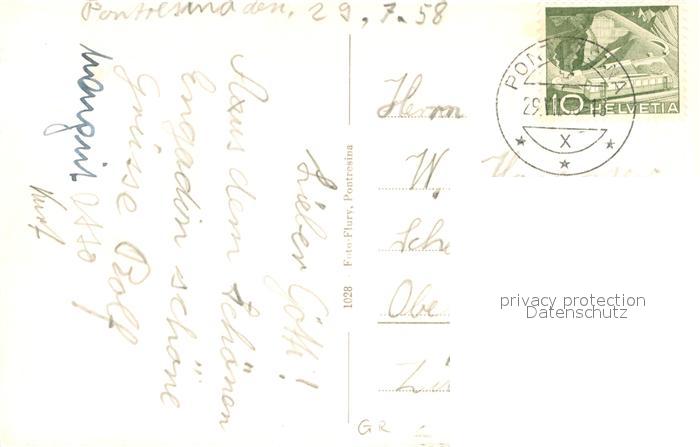 Pontresina den, 29. 7. 58
Lieber Götti!
Aus dem schönen
Engadin schöne
Grüsse Rolf
Margrit Otto
Kurt
1028 Foto-Flury, Pontresina
Herrn
W.
Sch
Obe
Zür
GR
PONTRESINA
29.VII.58-18
X
10 HELVETIA
privacy protection
Datenschutz